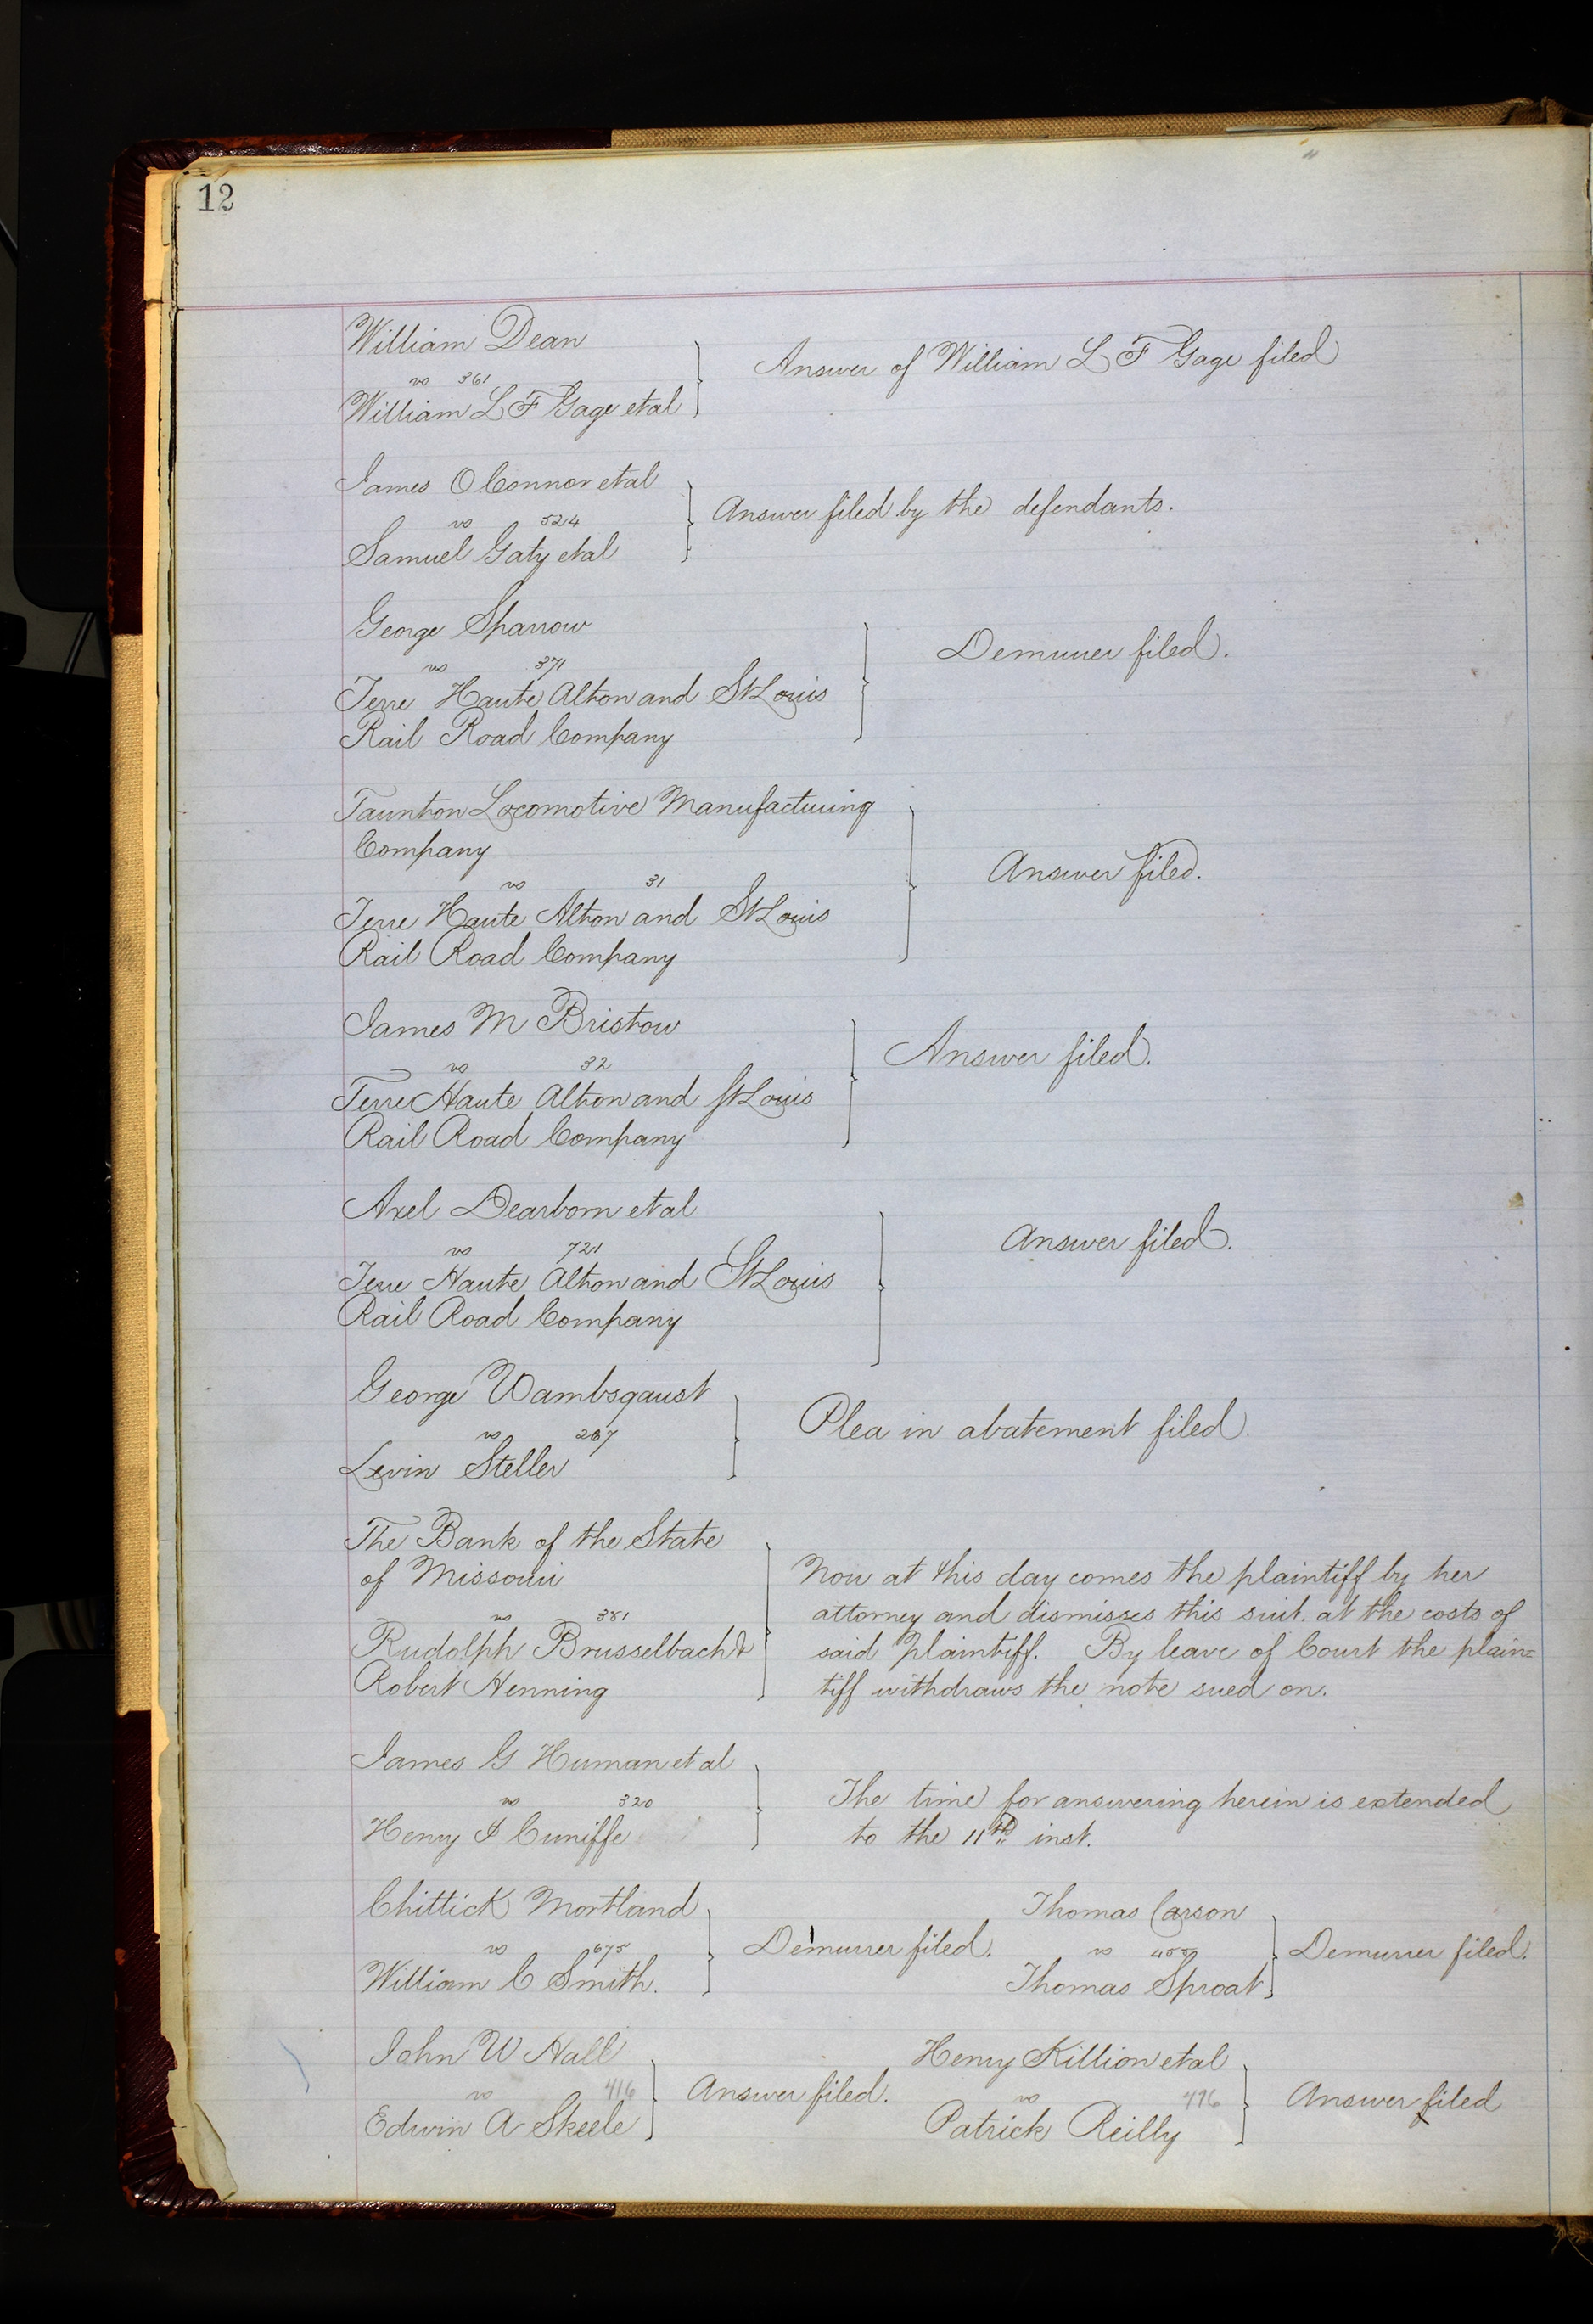 12
William Dean
vs 361
William L F Gage et al
Answer of William L F Gage filed
James O Connor et al
vs 524
Samuel Gaty et al
Answer filed by the defendants.
George Sparrow
vs 371
Terre Haute Alton and St Louis
Rail Road Company
Demurrer filed.
Taunton Locomotive Manufacturing
Company
vs 31
Terre Haute Alton and St Louis
Rail Road Company
Answer filed.
James M Bristow
vs 32
Terre Haute Alton and St Louis
Rail Road Company
Answer filed.
Axel Dearborn et al
vs 721
Terre Haute Alton and St Louis
Rail Road Company
Answer filed.
George Wambsgaust
vs 267
Levin Steller
Plea in abatement filed.
The Bank of the State
of Missouri
vs 381
Rudolph Brusselbach &
Robert Henning
Now at this day comes the plaintiff by her
attorney and dismisses this suit. at the costs of
said plaintiff. By leave of Court the plain=
tiff withdraws the note sued on.
James G Human et al
vs 320
Henry I Cuniffe
The time for answering herein is extended
to the 11th inst.
Chittick Mortland
vs 675
William C Smith.
Demurrer filed.
Thomas Carson
vs
Thomas Sproat
Demurrer filed.
John W Hall
vs 416
Edwin A Skeele
Answer filed.
Henry Killion et al
vs 476
Patrick Reilly
Answer filed